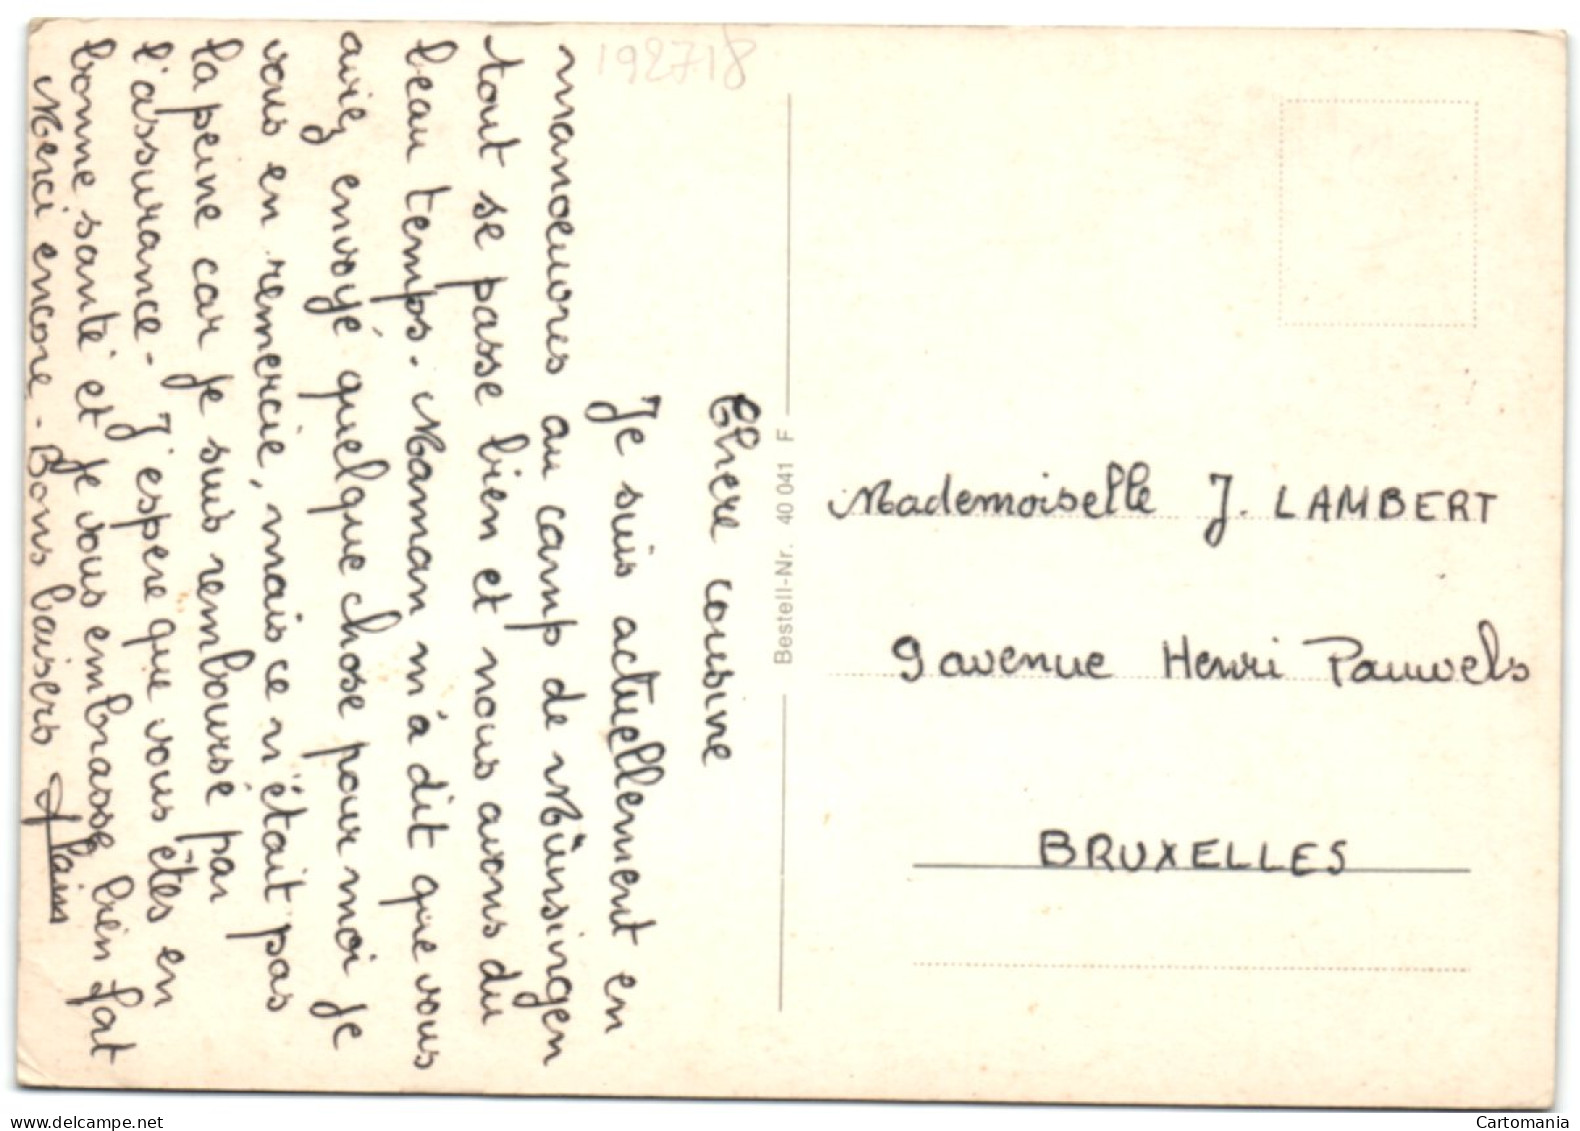 192718
Chere cousine
Je suis actuellement en
manoeuvres au camp de Münsingen
tout se passe bien et nous avons du
beau temps. Maman m'a dit que vous
aviez envoyé quelque chose pour moi je
vous en remercie, mais ce n'était pas
la peine car je suis remboursé par
l'assurance - J'espere que vous êtes en
bonne santé et je vous embrasse bien fat
Merci encore - Bons baisers
Bestell-Nr. 40 041 F
Mademoiselle J. LAMBERT
9 avenue Henri Pauwels
BRUXELLES
Cartomania